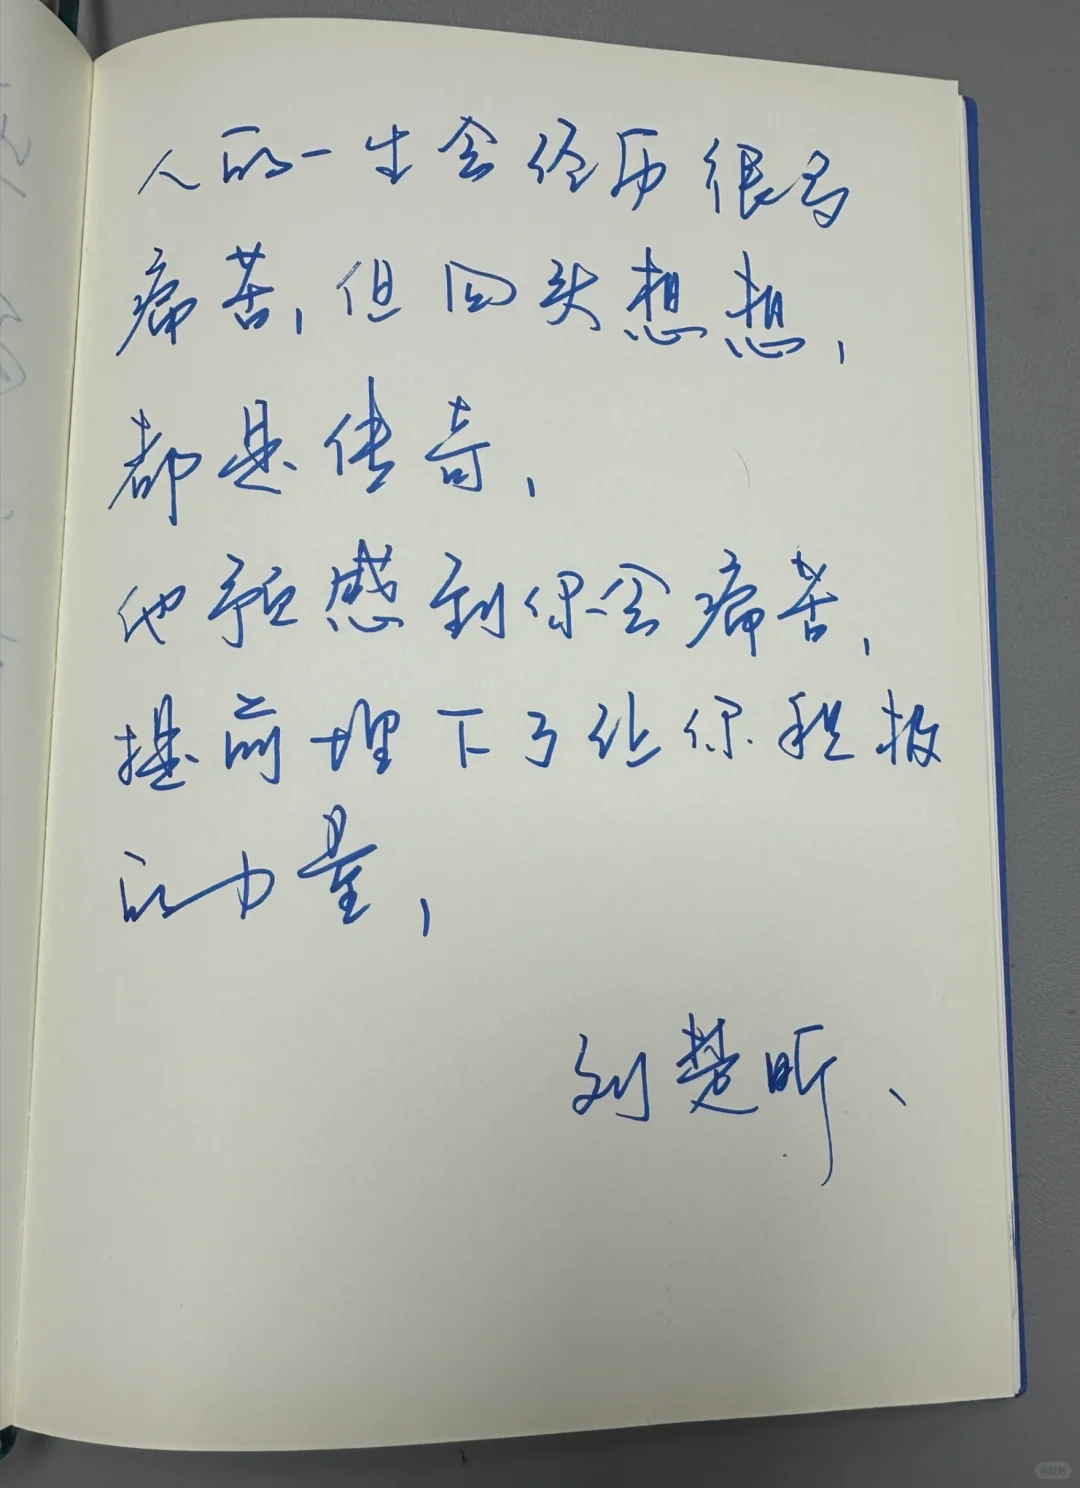 人的一生会经历很多
痛苦,但回头想想,
都是传奇,
他预感到你会痛苦,
提前埋下了让你积极
的力量,
刘楚昕、
小红书